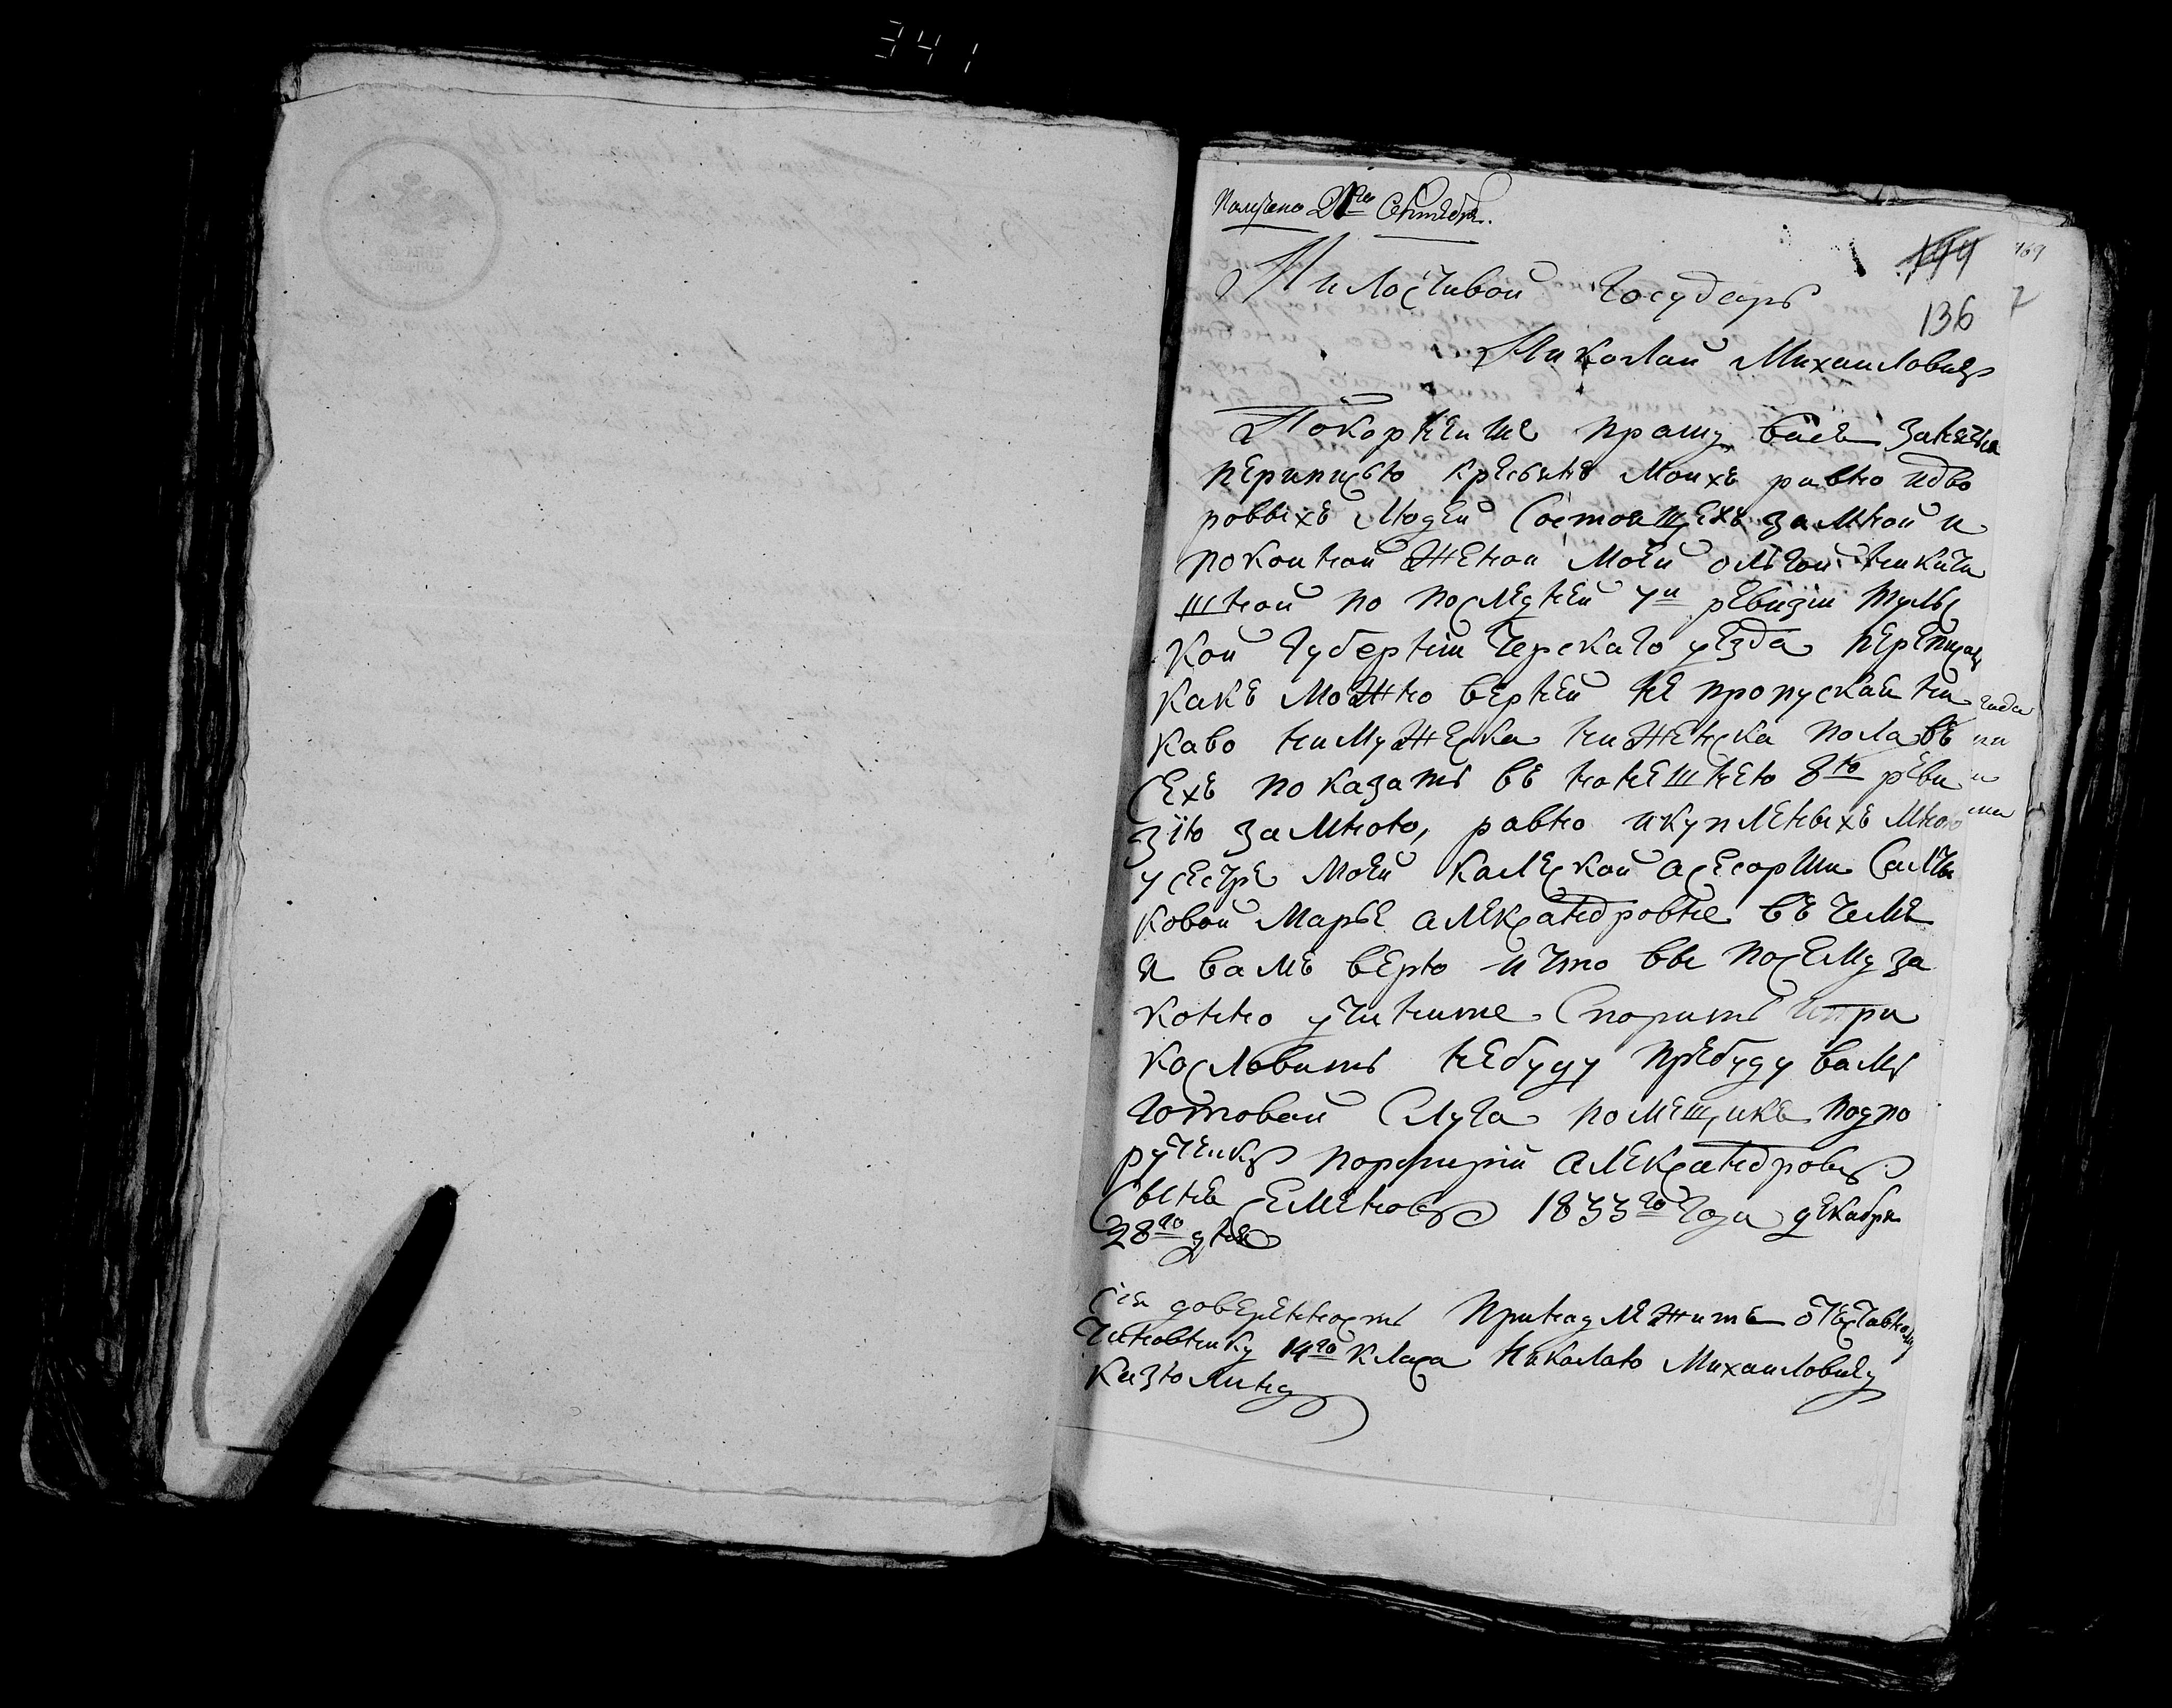 341
Получено 21го Сентября.
144
169
136
7
Милостивои Государь
Николаи Михаиловичь
Покорнеише прашу васъ занятца
периписью кресьянъ Моихъ равно идво
ровыхъ Людеи Состоящехъ за мнои и
покоинои женои Моеи ольгои никити
шнои по последнеи 7и ревизіи тулс
кои губерніи Черскаго уезда перепис
какъ можно вернеи не пропускаи ни
каво нимужеска ниженска пола въ
сехъ показать въ нонешнею 8ю реви
зію замною, равно икупленыхъ Мною
усестре моеи калескои асесорши Салты
ковои Марье александровне въ чемъ
я вамъ верю ичто вы посему за
конно учините Спорить ипри
кословить небуду пребуду вамъ
готовои Слуга помещикъ подпо
ручикъ порфирии александровъ
Сынъ Семеновъ 1833го Года декабря
28го дня
Сия доверенность принадлежитъ отставному
Чиновнику 14го класа Николаю Михаиловичу
Кизюлину